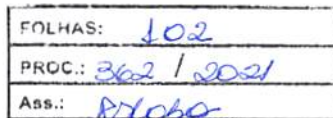 FOLHAS: 102
PROC.: 362 / 2021
Ass.: